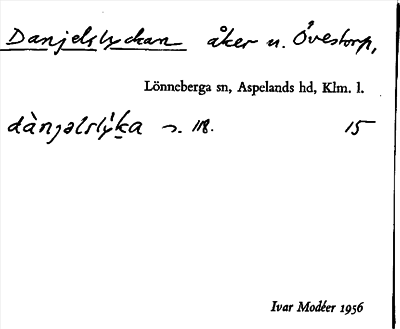 Danjelslyckan åker u. Övestorp,
Lönneberga sn, Aspelands hd, Klm. l.
dànjəlslỳka 15
Ivar Modéer 1956